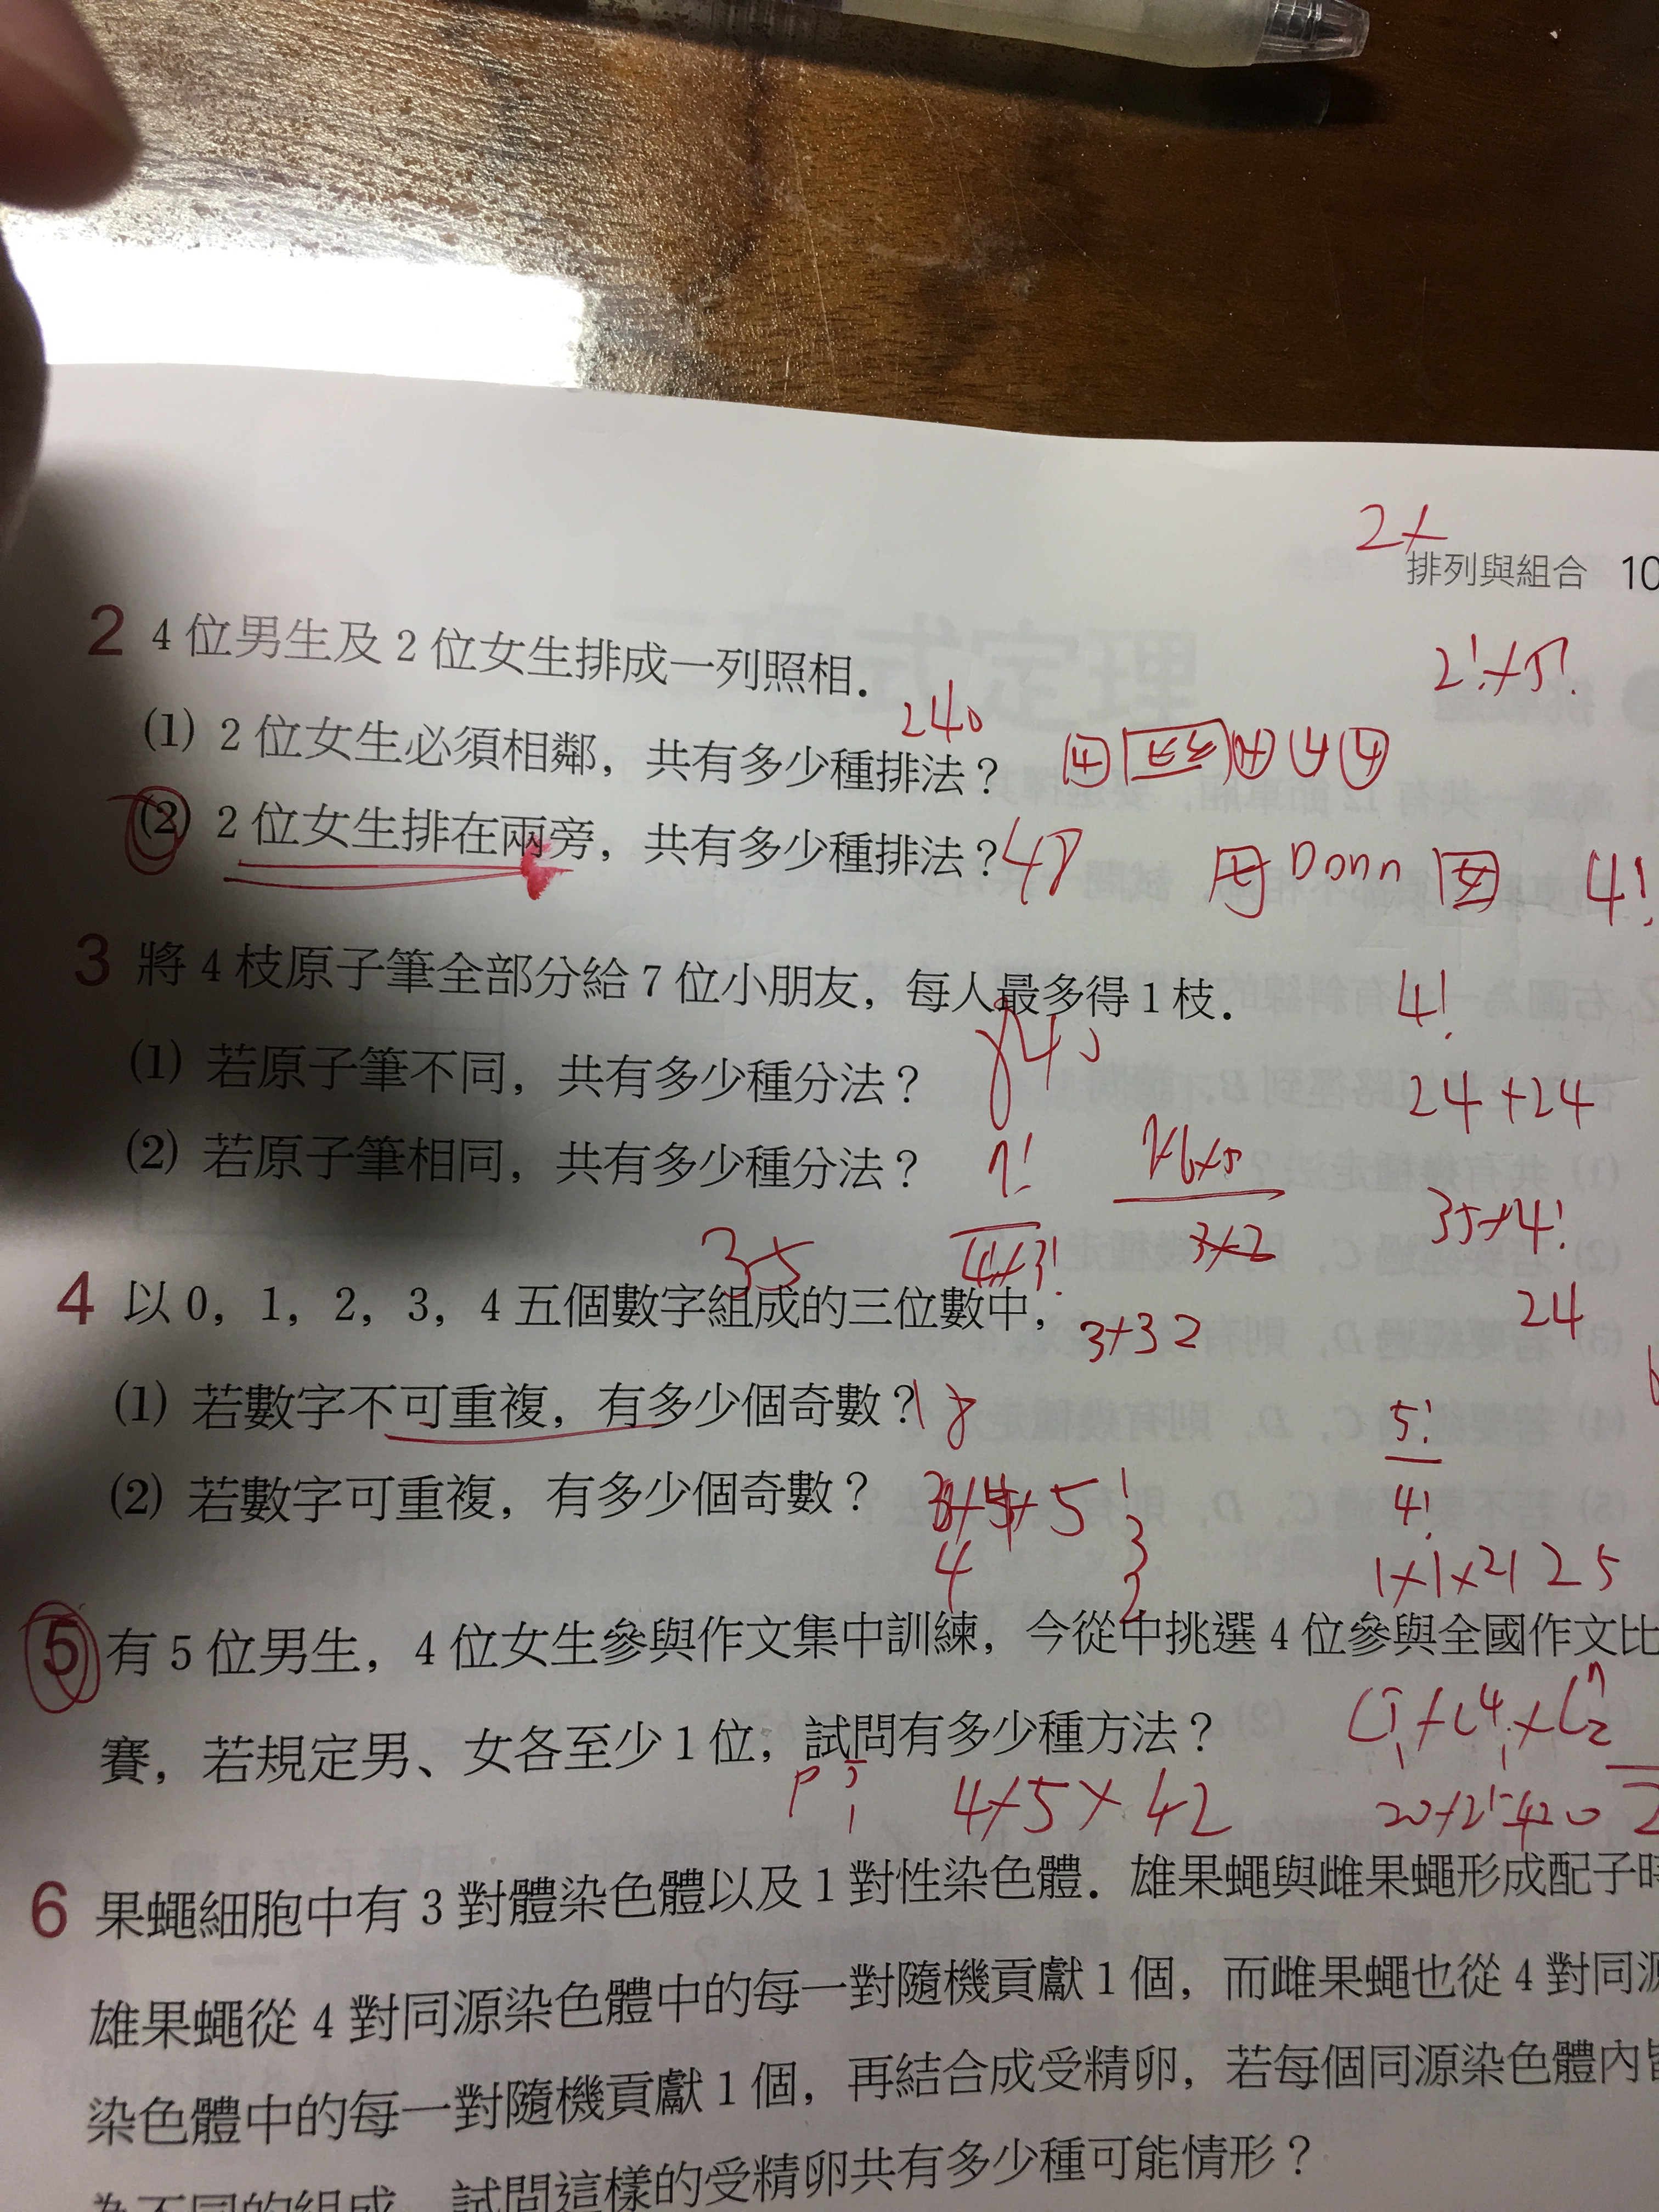 2+
排列與組合 10
2 4 位男生及 2 位女生排成一列照相．
2!×5!
240
(1) 2 位女生必須相鄰，共有多少種排法？
(2) 2 位女生排在兩旁，共有多少種排法？48
女 男 女 4!
3 將 4 枝原子筆全部分給 7 位小朋友，每人最多得 1 枝．
4!
840
(1) 若原子筆不同，共有多少種分法？
24+24
(2) 若原子筆相同，共有多少種分法？
7!
4!×3!
7×6×5
3×2
35×4!
35
24
4 以 0，1，2，3，4 五個數字組成的三位數中，
(1) 若數字不可重複，有多少個奇數？18
5!
4!
(2) 若數字可重複，有多少個奇數？
5 有 5 位男生，4 位女生參與作文集中訓練，今從中挑選 4 位參與全國作文比
賽，若規定男、女各至少 1 位，試問有多少種方法？
4×5×42
20×21=420
6 果蠅細胞中有 3 對體染色體以及 1 對性染色體．雄果蠅與雌果蠅形成配子時
雄果蠅從 4 對同源染色體中的每一對隨機貢獻 1 個，而雌果蠅也從 4 對同源
染色體中的每一對隨機貢獻 1 個，再結合成受精卵，若每個同源染色體內皆
為不同的組成，試問這樣的受精卵共有多少種可能情形？